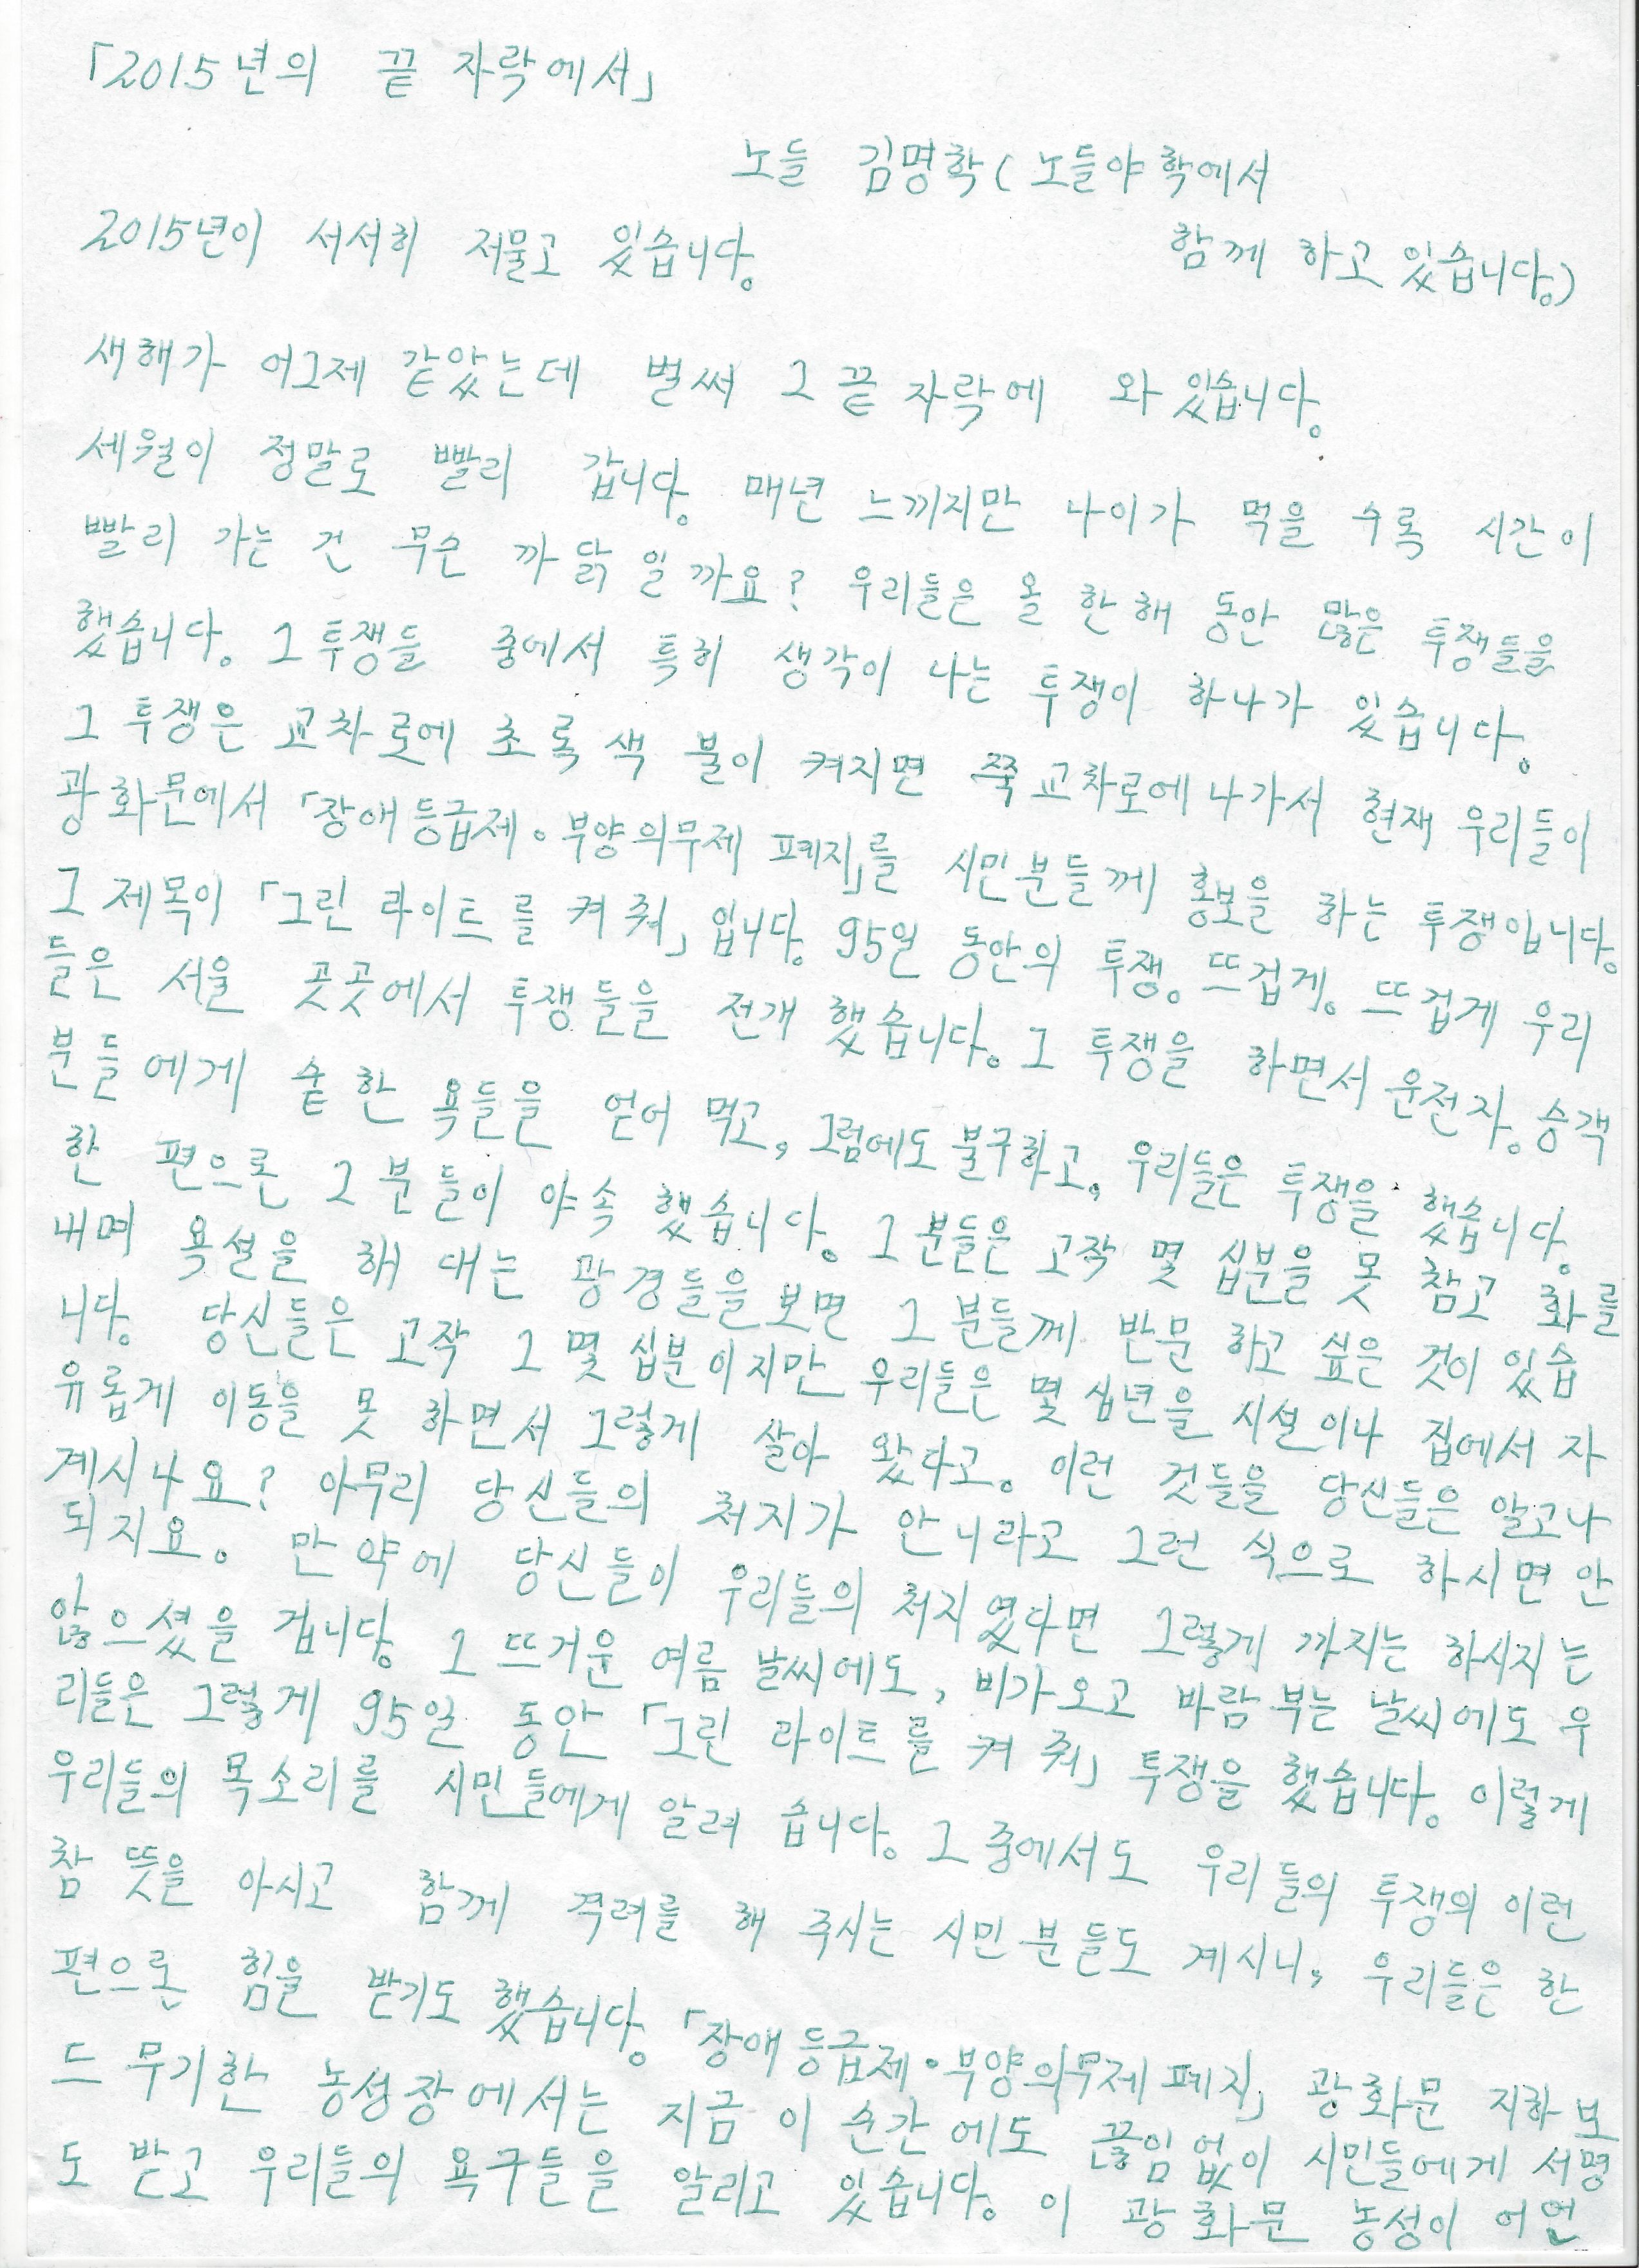 「2015년의 끝 자락에서」
노들 김명학(노들야학에서
함께 하고 있습니다.)
2015년이 서서히 저물고 있습니다.
새해가 어그제 같았는데 벌써 그 끝 자락에 와 있습니다.
세월이 정말로 빨리 갑니다. 매년 느끼지만 나이가 먹을 수록 시간이
빨리 가는 건 무슨 까닭 일까요? 우리들은 올 한해 동안 많은 투쟁들을
했습니다. 그 투쟁들 중에서 특히 생각이 나는 투쟁이 하나가 있습니다.
그 투쟁은 교차로에 초록색 불이 켜지면 쭉 교차로에 나가서 현재 우리들이
광화문에서 「장애등급제。부양의무제 폐지」를 시민분들께 홍보을 하는 투쟁입니다.
그 제목이 「그린 라이트를 켜 줘」입니다. 95일 동안의 투쟁。뜨겁게。뜨겁게 우리
들은 서울 곳곳에서 투쟁들을 전개 했습니다. 그 투쟁을 하면서 운전자。승객
분들에게 숱한 욕들을 얻어 먹고, 그럼에도 불구하고, 우리들은 투쟁을 했습니다.
한 편으론 그 분들이 야속 했습니다. 그 분들은 고작 몇 십분을 못 참고 화를
내며 욕설을 해 대는 광경들을 보면 그 분들께 반문 하고 싶은 것이 있습
니다. 당신들은 고작 그 몇 십분 이지만 우리들은 몇 십년을 시설이나 집에서 자
유롭게 이동을 못 하면서 그렇게 살아 왔다고。이런 것들을 당신들은 알고나
계시나요? 아무리 당신들의 처지가 안니라고 그런 식으로 하시면 안
되지요. 만약에 당신들이 우리들의 처지였다면 그렇게 까지는 하시지는
않으셨을 겁니다. 그 뜨거운 여름 날씨에도, 비가오고 바람부는 날씨에도 우
리들은 그렇게 95일 동안 「그린 라이트를 켜 줘」 투쟁을 했습니다. 이렇게
우리들의 목소리를 시민들에게 알려 습니다. 그 중에서도 우리들의 투쟁의 이런
참 뜻을 아시고 함께 격려를 해 주시는 시민 분들도 계시니, 우리들은 한
편으론 힘을 받기도 했습니다. 「장애등급제·부양의무제 폐지」 광화문 지하보
드 무기한 농성장에서는 지금 이 순간에도 끊임없이 시민들에게 서명
도 받고 우리들의 욕구들을 알리고 있습니다. 이 광화문 농성이 어언